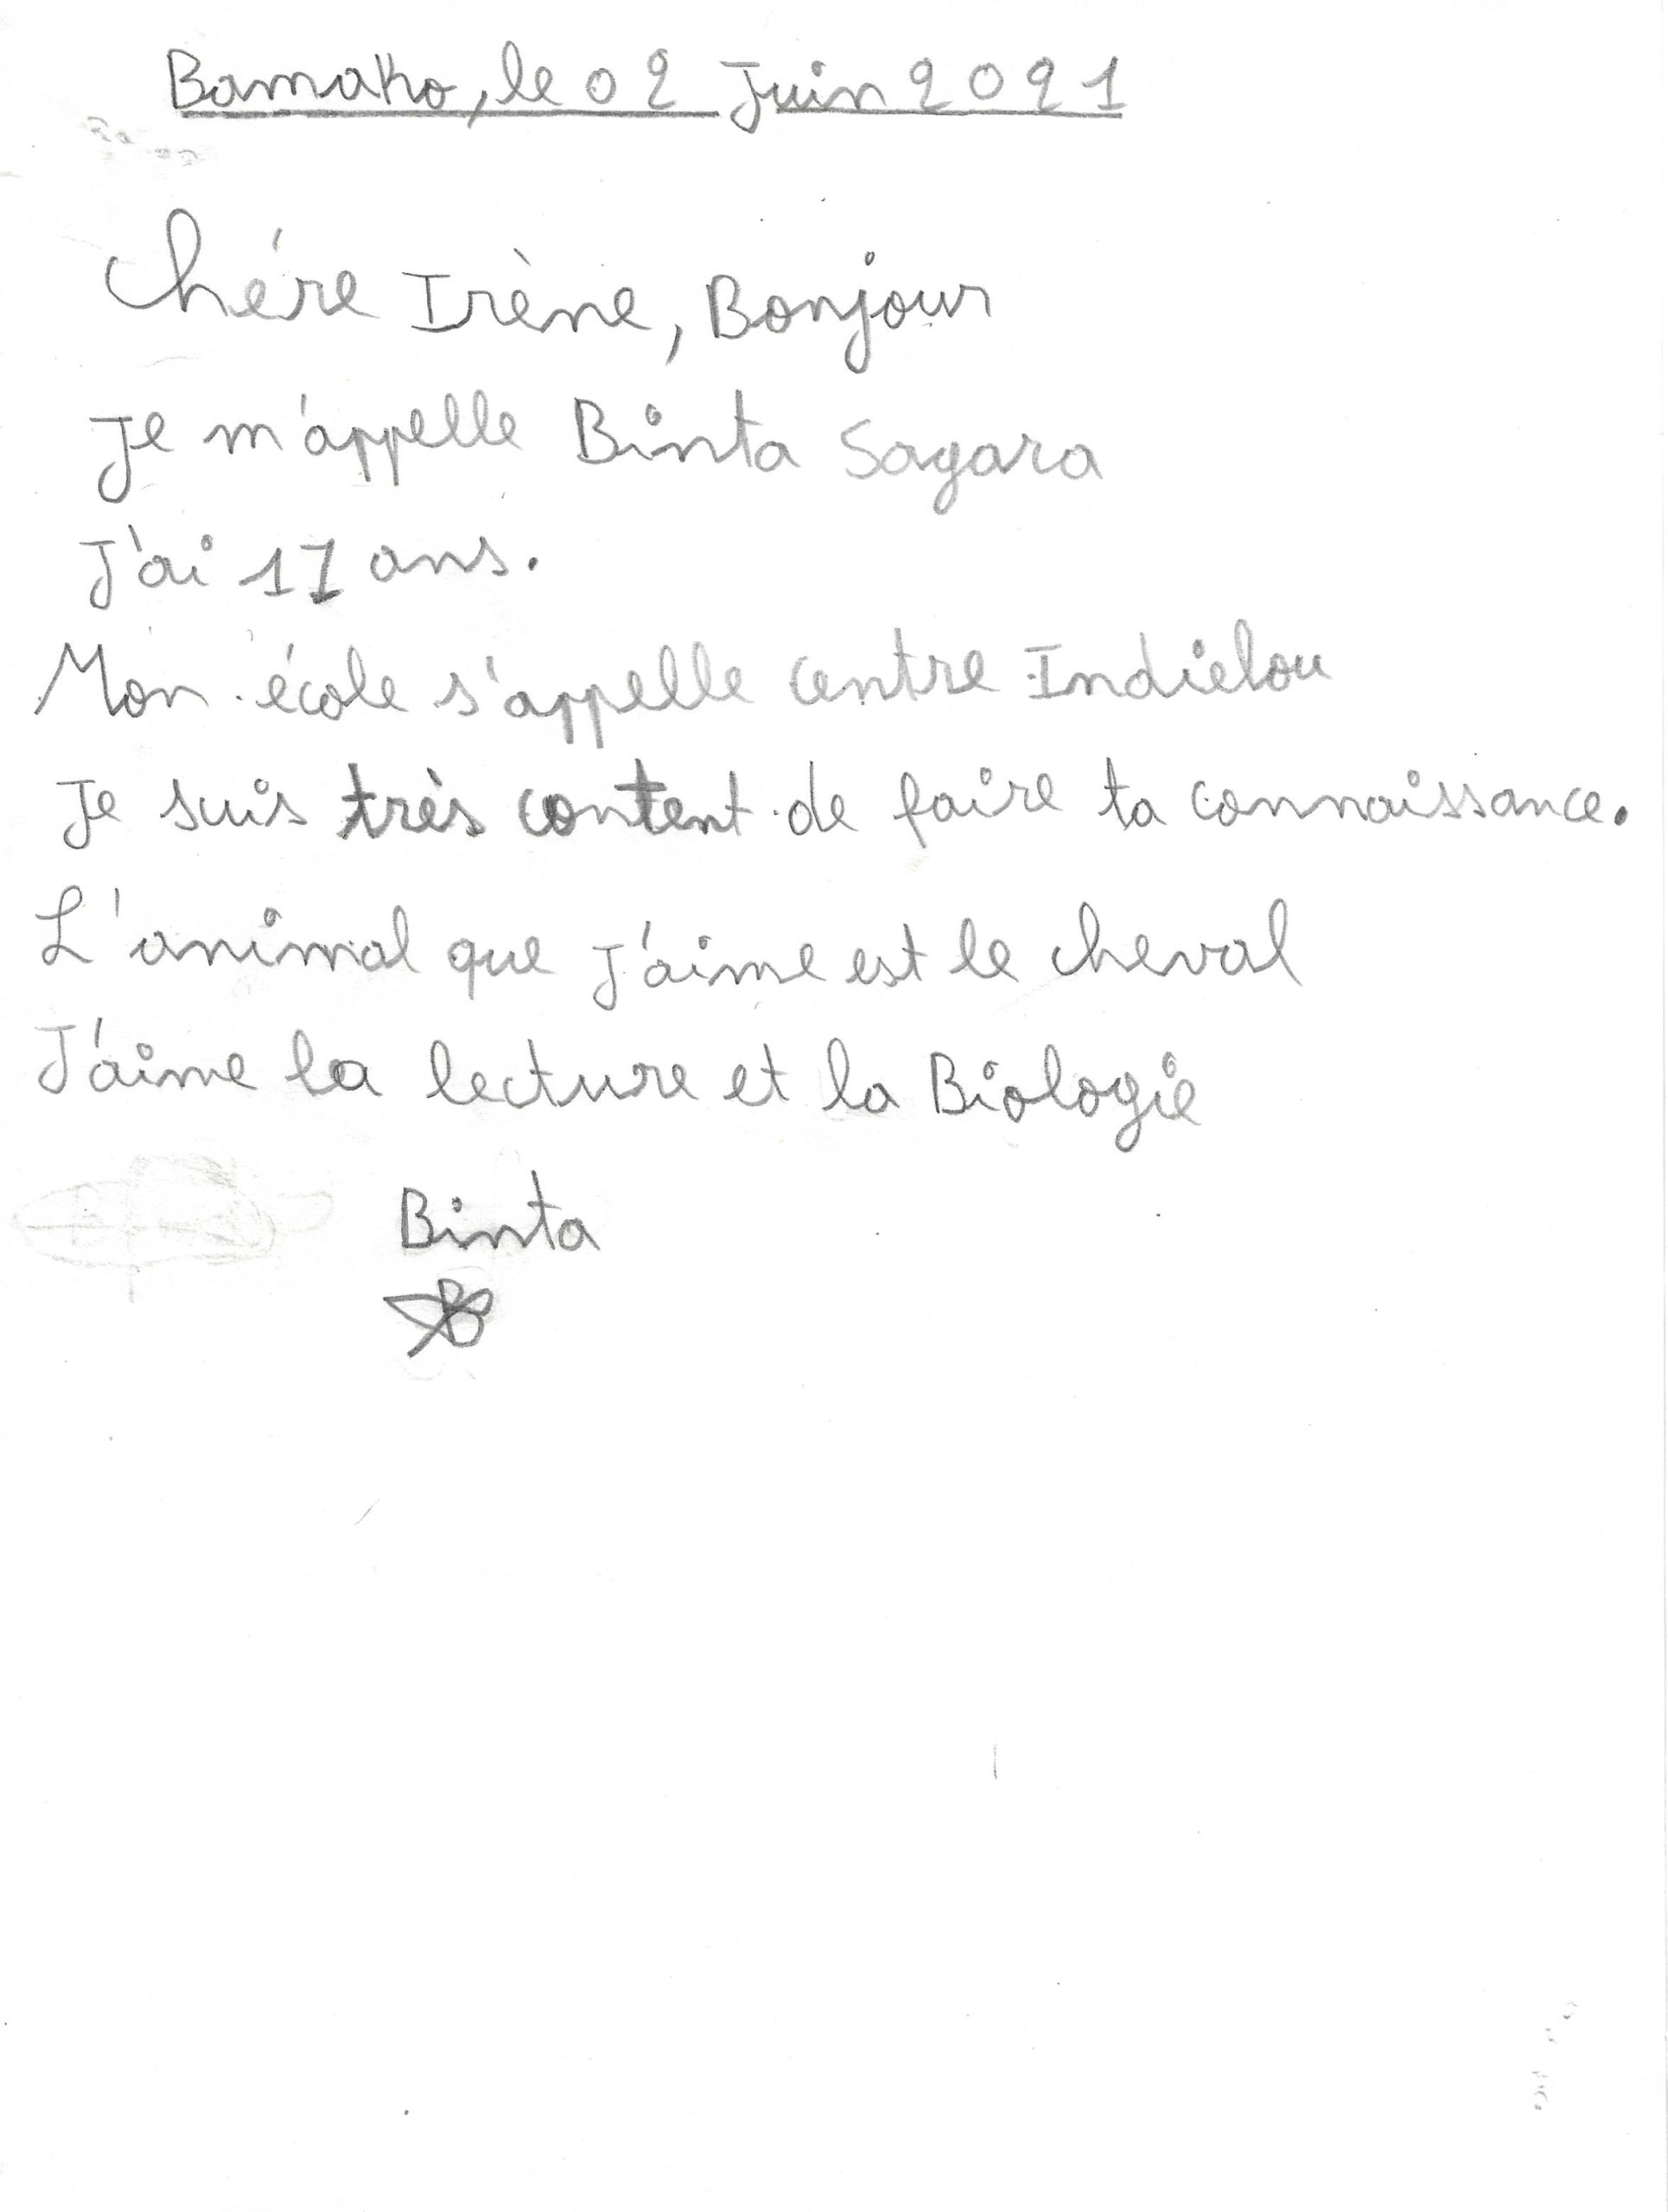 Bamako, le 02 Juin 2021
Chére Irène, Bonjour
Je m'appelle Binta Sagara
J'ai 17 ans.
Mon école s'appelle centre Indiélou
Je suis très content de faire ta connaissance.
L'animal que j'aime est le cheval
J'aime la lecture et la Biologie
Binta